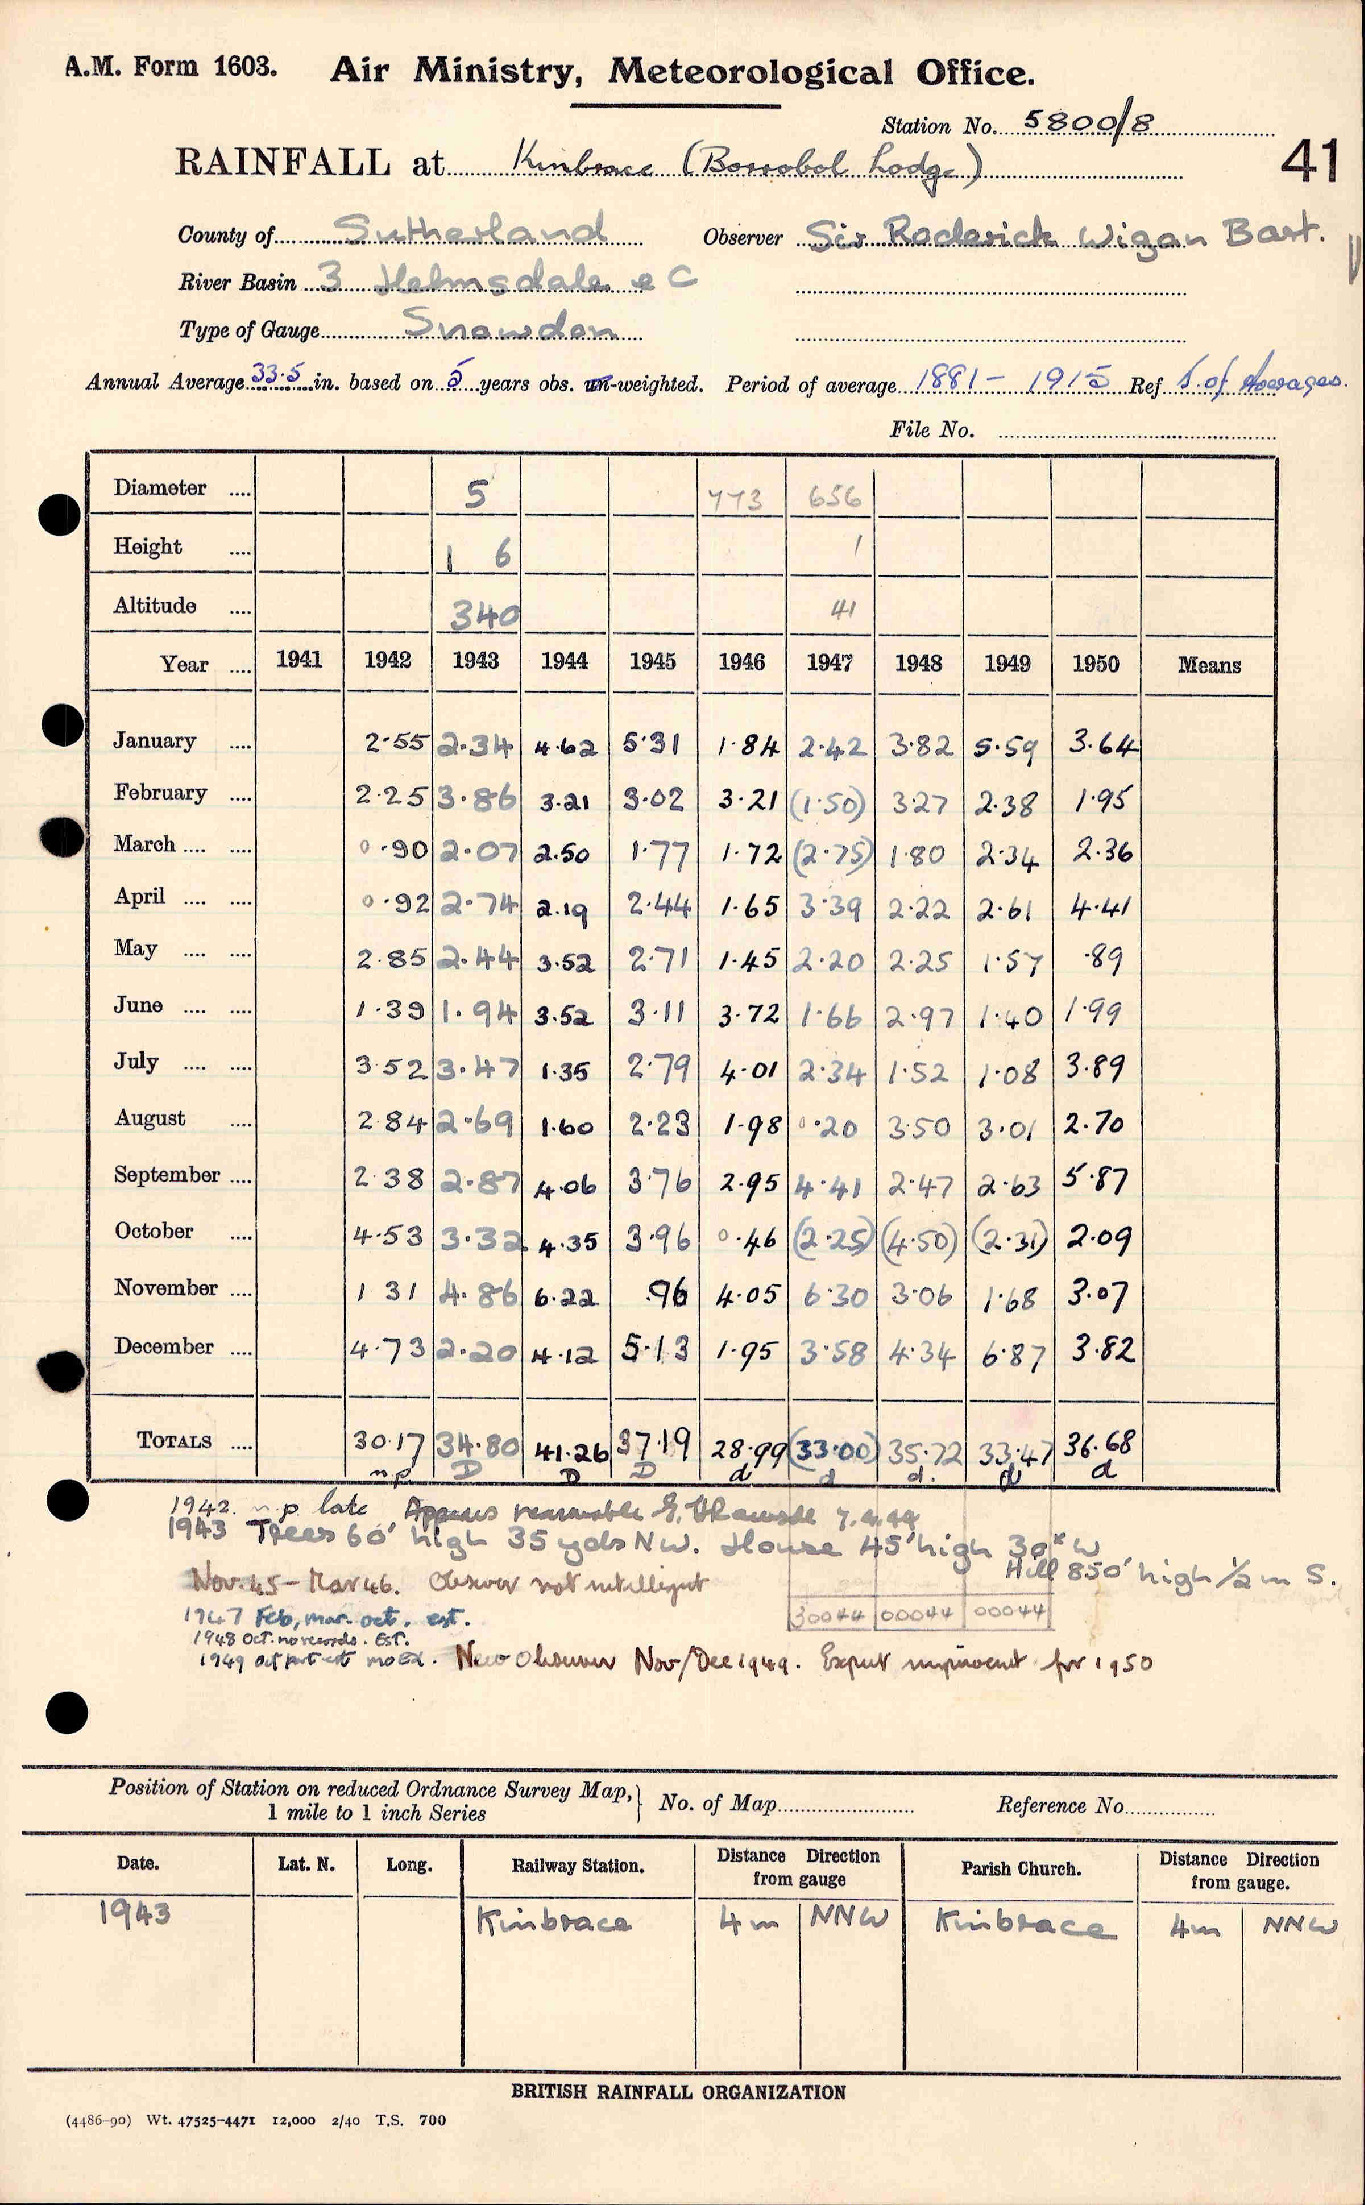 A.M. Form 1603. Air Ministry, Meteorological Office.
Station No. 5800/8
41
RAINFALL at Kinbrace (Borrobol Lodge)
County of Sutherland Observer Sir Roderick Wigan Bart.
River Basin 3 Helmsdale e C
Type of Gauge Snowdon
Annual Average 33.5 in. based on 5 years obs. un-weighted. Period of average 1881 – 1915 Ref S. of Averages.
File No.
Diameter .... 5 773 656
Height .... 1 6 1
Altitude .... 340 41
Year .... 1941 1942 1943 1944 1945 1946 1947 1948 1949 1950 Means
January .... 2.55 2.34 4.62 5.31 1.84 2.42 3.82 5.59 3.64
February .... 2.25 3.86 3.21 3.02 3.21 (1.50) 3.27 2.38 1.95
March .... .... 0.90 2.07 2.50 1.77 1.72 (2.75) 1.80 2.34 2.36
April .... .... 0.92 2.74 2.19 2.44 1.65 3.39 2.22 2.61 4.41
May .... .... 2.85 2.44 3.52 2.71 1.45 2.20 2.25 1.57 .89
June .... .... 1.39 1.94 3.52 3.11 3.72 1.66 2.97 1.40 1.99
July .... .... 3.52 3.47 1.35 2.79 4.01 2.34 1.52 1.08 3.89
August .... 2.84 2.69 1.60 2.23 1.98 0.20 3.50 3.01 2.70
September .... 2.38 2.87 4.06 3.76 2.95 4.41 2.47 2.63 5.87
October .... 4.53 3.32 4.35 3.96 0.46 (2.25) (4.50) (2.31) 2.09
November .... 1 31 4.86 6.22 .96 4.05 6.30 3.06 1.68 3.07
December .... 4.73 2.20 4.12 5.13 1.95 3.58 4.34 6.87 3.82
TOTALS .... 30.17 34.80 41.26 37.19 28.99 (33.00) 35.72 33.47 36.68
n.p. D D D d d d. d d
1942 n.p late Appears reasonable 7.4.44
1943 Trees 60' high 35 yds NW. House 45' high 30° W
Hill 850' high 1/2 m S.
Nov. 45 – Mar 46. Observer not intelligent
30044 00044 00044
1947 Feb, mar. oct. est.
1948 Oct. no records. Est.
1949 Oct part est mo Ed. New Observer Nov/Dec 1949. Expect improvement for 1950
Position of Station on reduced Ordnance Survey Map, 1 mile to 1 inch Series } No. of Map Reference No.
Date. Lat. N. Long. Railway Station. Distance Direction from gauge Parish Church. Distance Direction from gauge.
1943 Kinbrace 4m NNW Kinbrace 4m NNW
BRITISH RAINFALL ORGANIZATION
(4486-90) Wt. 47525-4471 12,000 2/40 T.S. 700